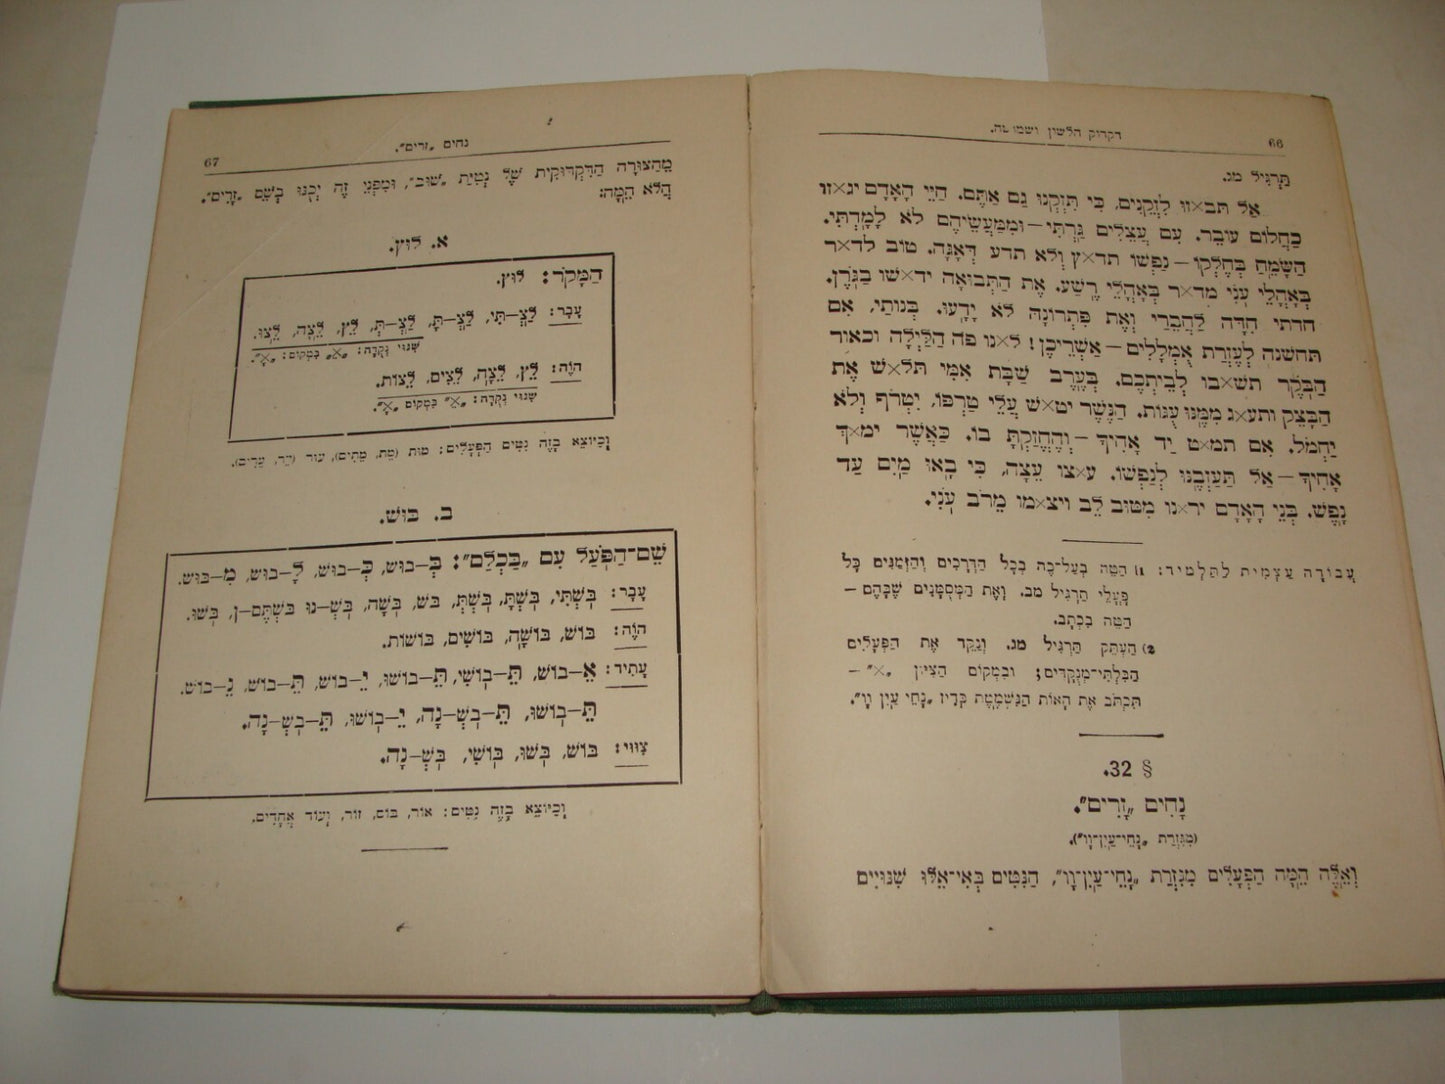 66
דקדוק הלשון ושמושה.
תַּרְגִּיל מג.
אַל תב×וזו לַזְּקֵנִים, כִּי תִּזְקְנוּ גַּם אַתֶּם. חַיֵּי הָאָדָם יג×זו
כַּחֲלוֹם עוֹבֵר. עִם עֲצֵלִים גַּרְתִּי—וּמִמַּעֲשֵׂיהֶם לֹא לָמָדְתִּי.
הַשָּׂמֵחַ בְּחֶלְקוֹ—נַפְשׁוֹ תד×ץ וְלֹא תדע דְּאָגָה. טוֹב לד×ר
בְּאָהֳלֵי עֹנִי מִד×ר בְּאָהֳלֵי רֶשַׁע. אֶת הַתְּבוּאָה יד×שׁו בַּגֹּרֶן.
חדתי חִידָה לַחֲבֵרַי וְאֶת פִּתְרוֹנָהּ לֹא יָדָעוּ. בְּנוֹתַי, אִם
תחשׁנה לְעֶזְרַת אֻמְלָלִים—אַשְׁרֵיכֶן! ל×נו פֹּה הַלַּיְלָה וכאור
הַבֹּקֶר תשׁ×בו לְבֵיתְכֶם. בְּעֶרֶב שַׁבָּת אִמִּי תל×שׁ אֶת
הַבָּצֵק ותע×ג מִמֶּנּוּ עֻגּוֹת. הַנֶּשֶׁר יט×שׂ עֲלֵי טַרְפּוֹ, יִטְרֹף וְלֹא
יַחְמֹל. אִם תמ×ט יַד אָחִיךָ—וְהֶחֱזַקְתָּ בּוֹ. כַּאֲשֶׁר ימ×ךְ
אָחִיךָ—אַל תַּעַזְבֶנּוּ לְנַפְשׁוֹ. ע×צו עֵצָה, כִּי בָאוּ מַיִם עַד
נָפֶשׁ. בְּנֵי הָאָדָם יר×נו מִטּוּב לֵב ויצ×מו מֵרֹב עֹנִי.
עֲבוֹדָה עַצְמִית לַתַּלְמִיד: 1) הַטֵּה בְּעַל־פֶּה בְּכָל הַדְּרָכִים וְהַזְּמַנִּים כָּל
פָּעֳלֵי תַרְגִּיל מב. וְאֶת הַמְּסֻמָּנִים שֶׁבָּהֶם—
הַטֵּה בִּכְתָב.
2) הַעְתֵּק תַּרְגִּיל מג. וְנַקֵּד אֶת הַפְּעָלִים
הַבִּלְתִּי־מְנֻקָּדִים; וּבִמְקוֹם הַצִּיּוּן „×"—
תִּכְתֹּב אֶת הָאוֹת הַנִּשְׁמֶטֶת כְּדִין „נָחֵי עַיִן וָו".
§ 32.
נָחִים „זָרִים".
(מִגִּזְרַת „נָחֵי־עַיִן־וָו").
וְאֵלֶּה הֵמָּה הַפְּעָלִים מִגִּזְרַת „נָחֵי־עַיִן־וָו", הַנִּטִּים בְּאֵי־אֵלּוּ שִׁנּוּיִים
67
נחים „זרים".
מֵהַצּוּרָה הַדִּקְדּוּקִית שֶׁל נְטִיַּת „שׁוּב", וּמִפְּנֵי זֶה יְכֻנּוּ בְּשֵׁם „זָרִים".
הֲלֹא הֵמָּה:
א. לוּץ.
הַמָּקֹר: לוּץ.
עָבָר: לַצְ—תִּי, לַצְ—תָּ, לַצְ—תְּ, לֵץ, לֵצָה, לֵצוּ.
שִׁנּוּי נְקֻדָּה: „×ֵ" בִּמְקוֹם: „×ָ".
הוֶֹה: לֵץ, לֵצָה, לֵצִים, לֵצוֹת.
שִׁנּוּי נְקֻדָּה: „×ֵ" בִּמְקוֹם „×ָ".
וְכַיּוֹצֵא בָזֶה נִטִּים הַפְּעָלִים: מוּת (מֵת, מֵתִים), עוּר (עֵר, עֵרִים).
ב. בּוּשׁ.
שֵׁם־הַפֹּעַל עִם „בַּכְלַם": בְּ—בוֹשׁ, כְּ—בוֹשׁ, לָ—בוֹשׁ, מִ—בּוֹשׁ.
עָבָר: בֹּשְׁתִּי, בֹּשְׁתָּ, בֹּשְׁתְּ, בּשׁ, בֹּשָׁה, בֹּשְׁ—נוּ בּשְׁתֶּם—ן, בֹּשׁוּ.
הוֶֹה: בּוֹשׁ, בּוֹשָׁה, בּוֹשִׁים, בּוֹשׁוֹת.
עָתִיד: אֵ—בוֹשׁ, תֵּ—בוֹשִׁי, תֵּ—בוֹשׁוּ, יֵ—בוֹשׁ, תֵּ—בוֹשׁ, נֵ—בוֹשׁ.
תֵּ—בוֹשׁוּ, תֵּ—בֹשְׁ—נָה, יֵ—בוֹשׁוּ, תֵּ—בֹשְׁ—נָה.
צִוּוּי: בּוֹשׁ, בֹּשׁוּ, בּוֹשִׁי, בֹּשְׁ—נָה.
וְכַיּוֹצֵא בָזֶה נִטִּים: אור, בּוֹס, זור, וְעוֹד אֲחָדִים.